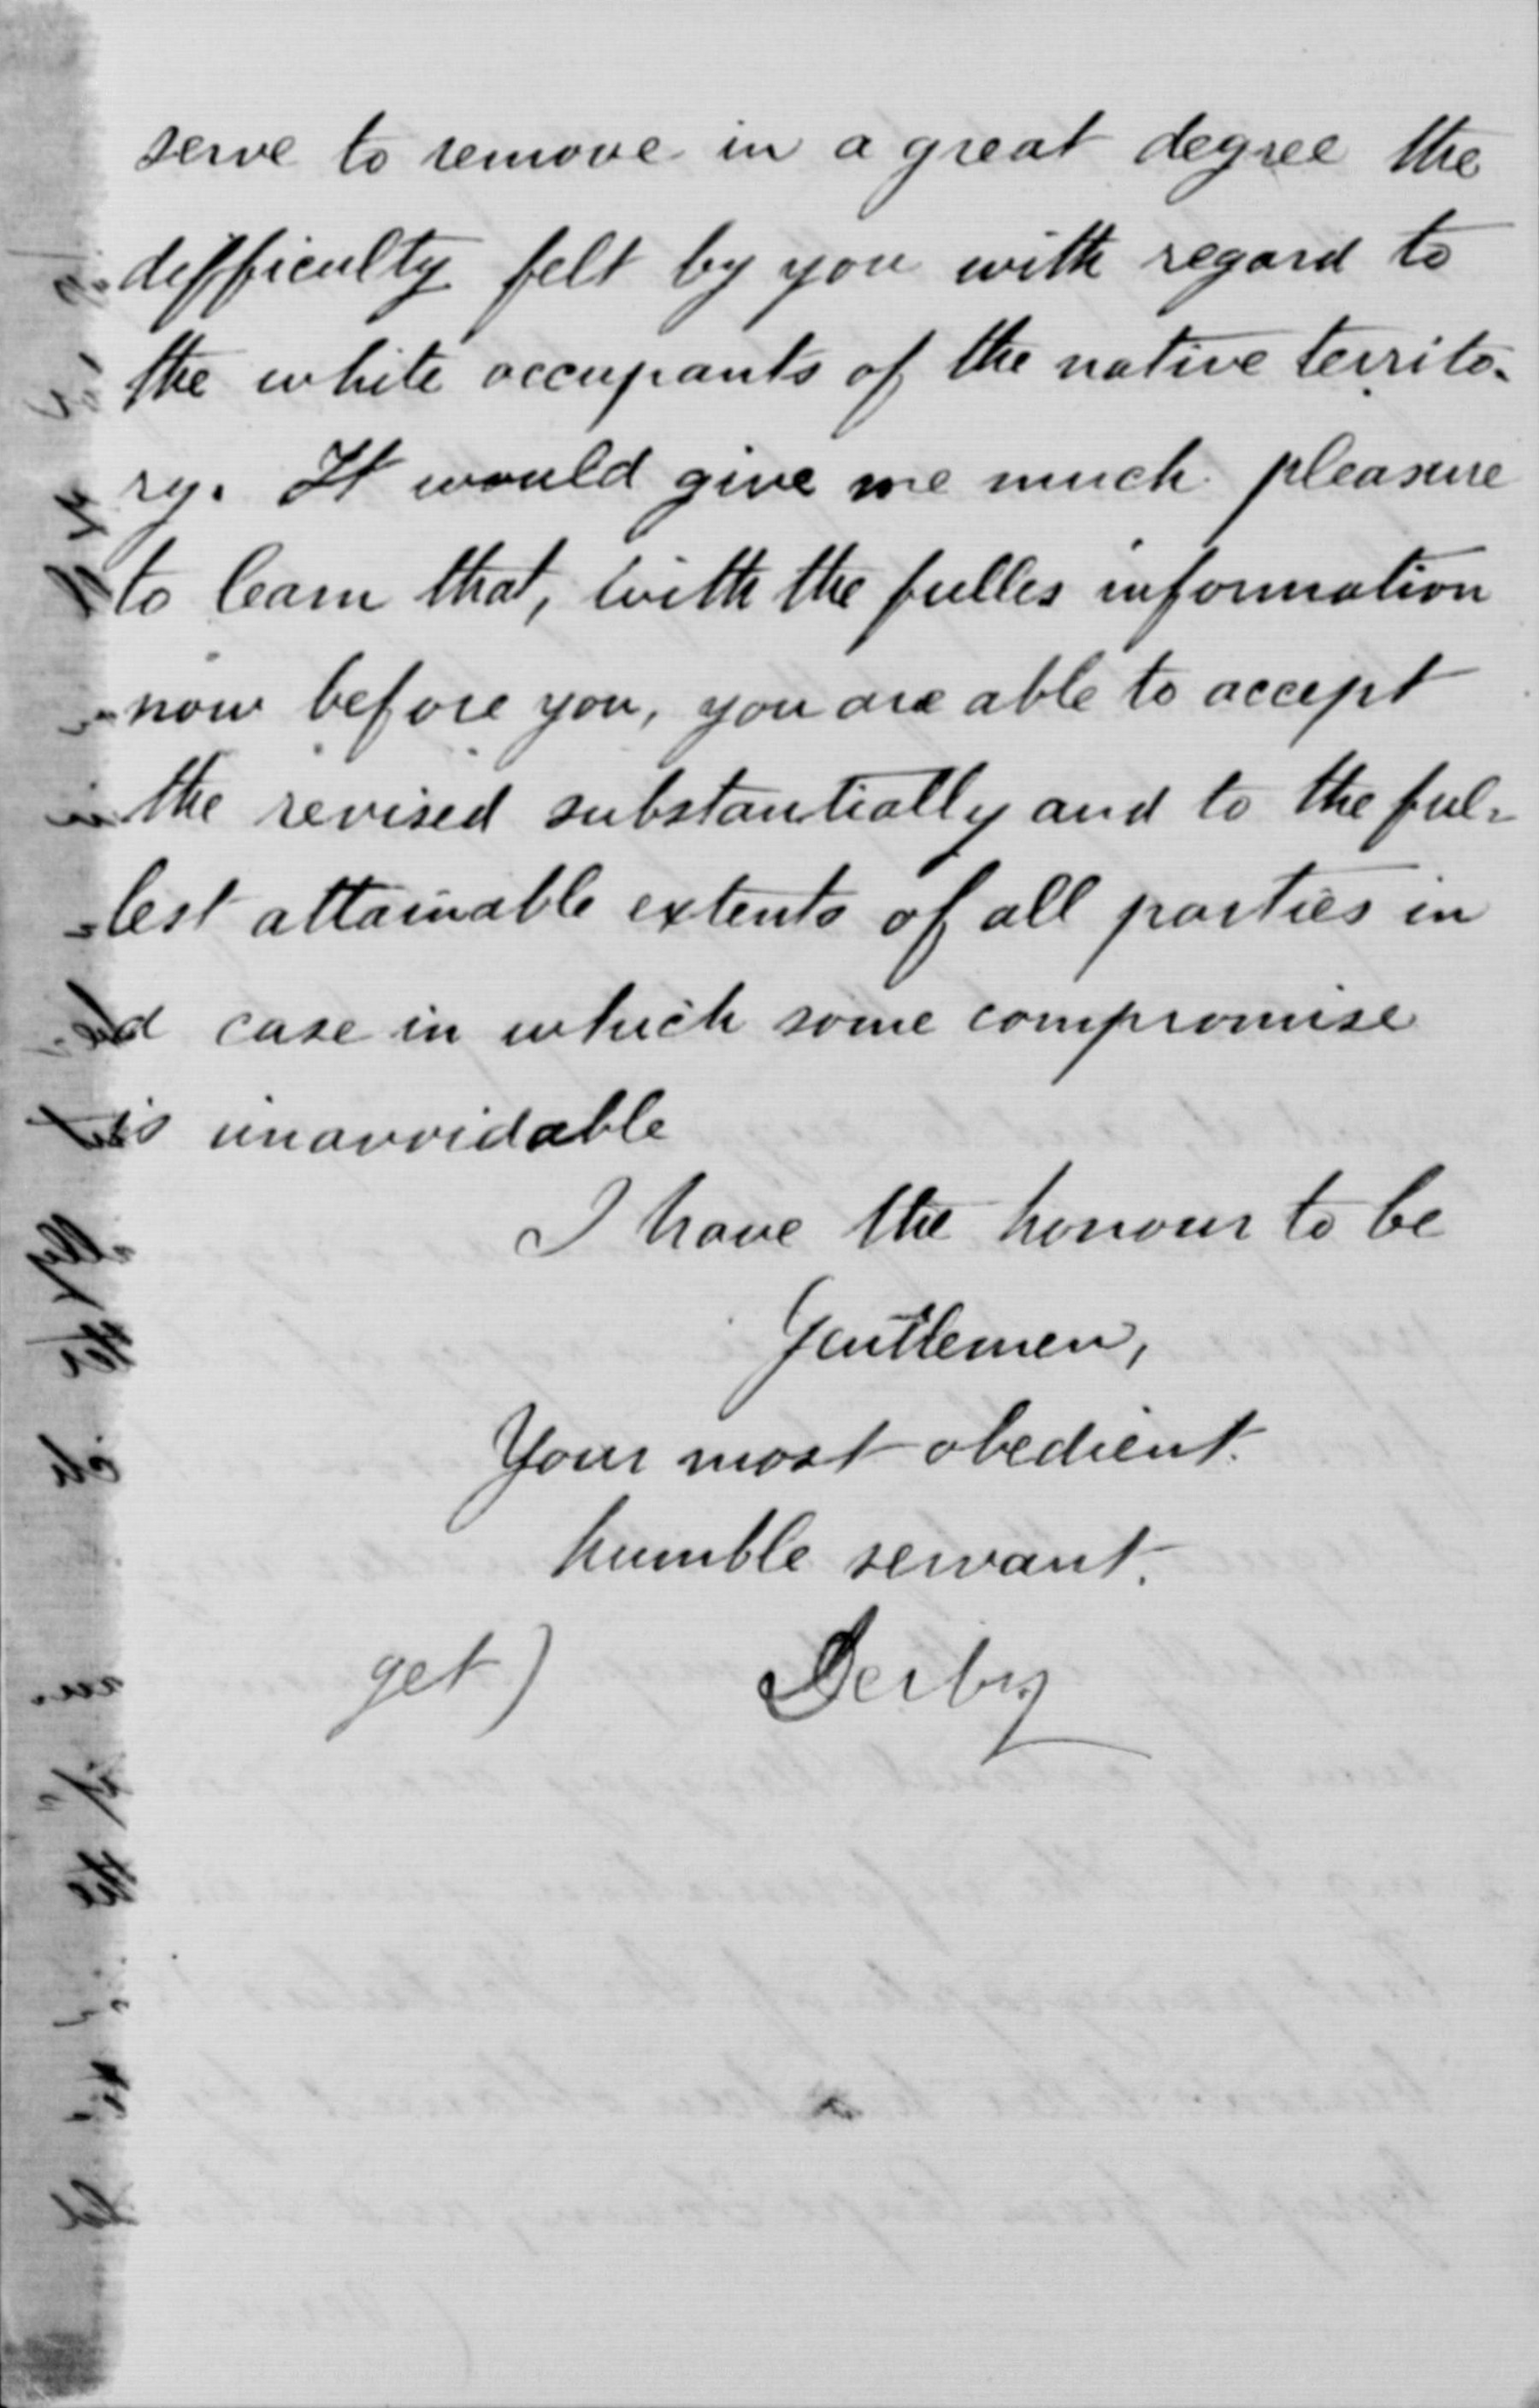 serve to remove in a great degree the
difficulty felt by you with regard to
the white occupants of the native territo-
ry. It would give me much pleasure
to learn that, with the fulles information
now before you, you are able to accept
the revised substantially and to the ful-
lest attainable extents of all parties in
d case in which some compromise
is unavoidable
I have the honour to be
Gentlemen,
Your most obedient.
humble servant.
get) Derby